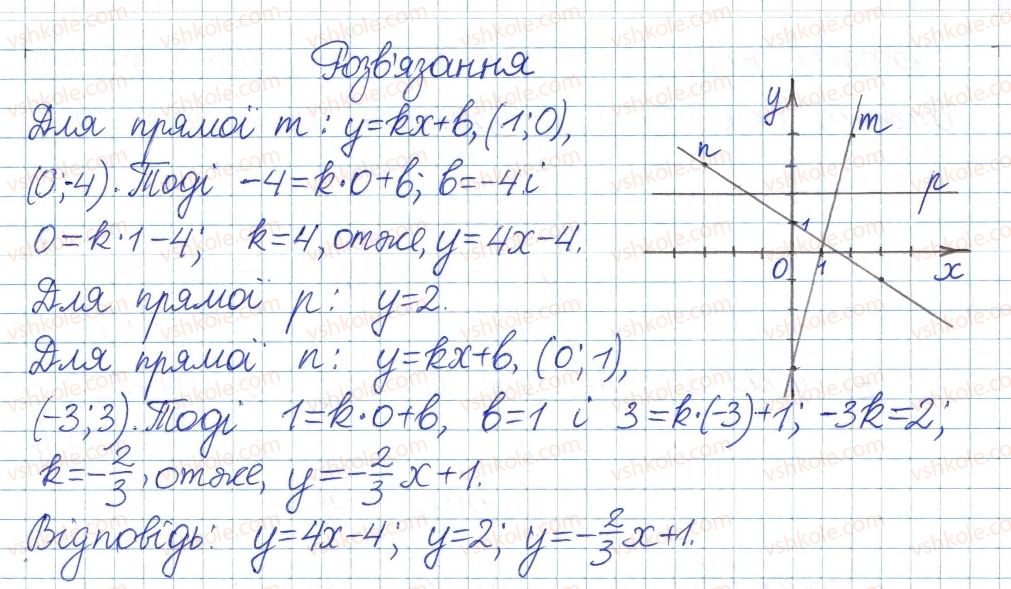 Розв'язання
Для прямої m: y=kx+b, (1;0),
(0;-4). Тоді -4=k·0+b; b=-4 і
0=k·1-4; k=4, отже, y=4x-4.
Для прямої p: y=2.
Для прямої n: y=kx+b, (0;1),
(-3;3). Тоді 1=k·0+b, b=1 і 3=k·(-3)+1; -3k=2;
k=-2/3, отже, y=-2/3x+1.
Відповідь: y=4x-4; y=2; y=-2/3x+1.
y
m
n
p
1
0
1
x
vshkole.com